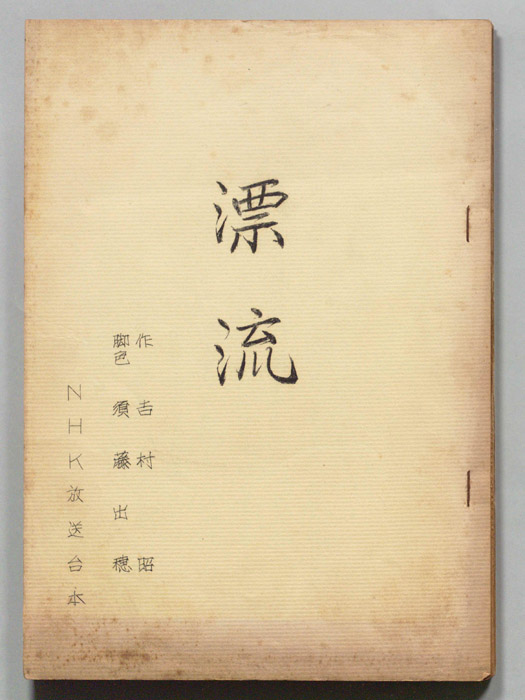 漂流
作 吉村 昭
脚色 須藤出穂
NHK放送台本